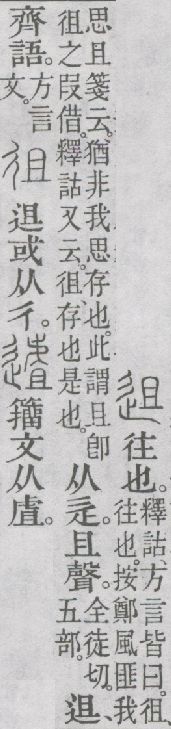 𨑭 往也。釋詁、方言皆曰。徂、
往也。按鄭風匪我
思且箋云。猶非我思存也。此謂且卽
徂之叚借。釋詁又云。徂、存也是也。
从辵。且聲。全徒切。
五部。
𨑭、
齊語。方言
文。
徂 𨑭或从彳。𨘂 籒文从虘。